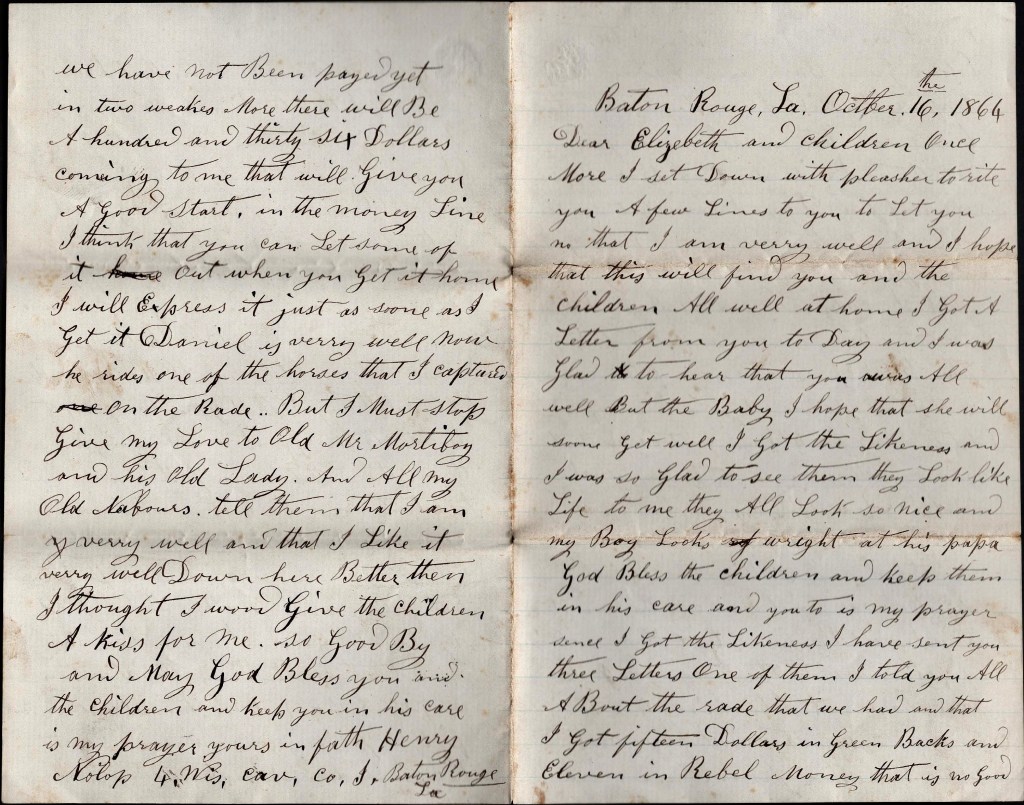 Baton Rouge, La. Octber. 16, the 1864
Dear Elizebeth and children Once
More I set Down with pleasher to rite
you A few Lines to you to Let you
no that I am verry well and I hope
that this will find you and the
children All well at home I Got A
Letter from you to Day and I was
Glad to hear that you was All
well But the Baby I hope that she will
soone Get well I Got the Likeness and
I was so Glad to see them they Look like
Life to me they All Look so nice and
my Boy Looks wright at his papa
God Bless the children and keep them
in his care and you to is my prayer
sence I Got the Likeness I have sent you
three Letters One of them I told you All
A Bout the rade that we had and that
I Got fifteen Dollars in Green Backs and
Eleven in Rebel Money that is no Good
we have not Been payed yet
in two weakes More there will Be
A hundred and thirty six Dollars
coming to me that will Give you
A Good start, in the money Line
I think that you can Let some of
it Out when you Get it home
I will Express it just as soone as I
Get it Daniel is verry well now
he rides one of the horses that I captured
On the Rade.. But I Must stop
Give my Love to Old Mr Mortiboy
and his Old Lady. And All my
Old Nabours. tell them that I am
verry well and that I Like it
verry well Down here Better then
I thought I wood Give the children
A kiss for Me. so Good By
and May God Bless you and
the children and keep you in his care
is my prayer yours in fath Henry
4. Wis, cav, Co, I, Baton Rouge
La